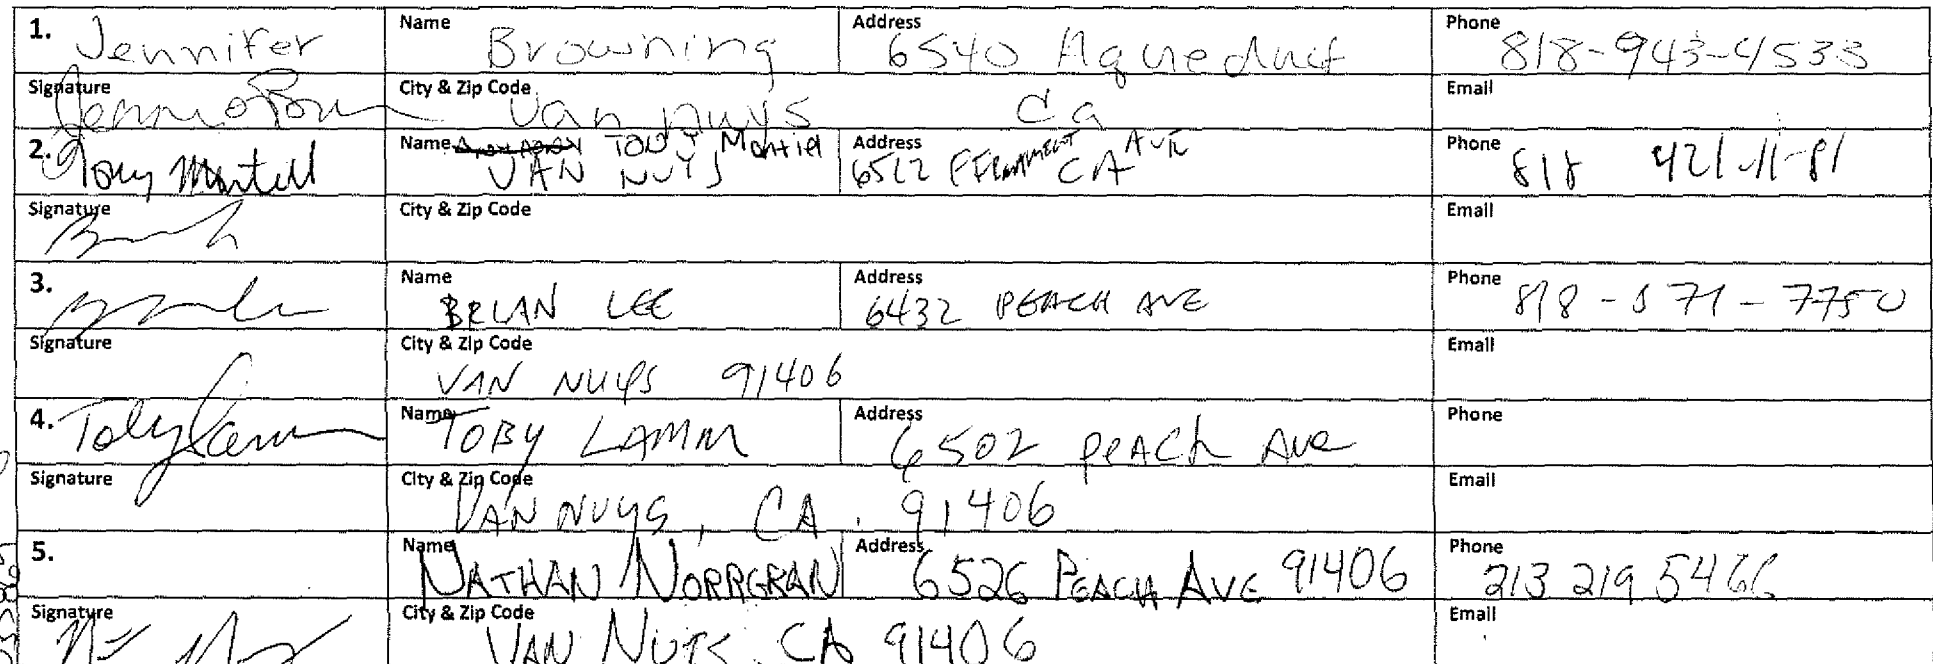 1. Jennifer Name Browning Address 6540 Aqueduct Phone 818-943-4533
Signature City & Zip Code Van nuys Ca Email
2. Tony Montiel Name TONY Montiel Address 6522 FIRMAMENT AVE Phone 818 421-11-81
VAN NUYS CA
Signature City & Zip Code Email
3. Name BRIAN LEE Address 6432 PEACH AVE Phone 818-571-7750
Signature City & Zip Code VAN NUYS 91406 Email
4. Toby Lamm Name TOBY LAMM Address 6502 PEACh Ave Phone
Signature City & Zip Code VAN NUYS, CA. 91406 Email
5. Name NATHAN NORRGRAN Address 6526 PEACH AVE 91406 Phone 213 219 5466
Signature City & Zip Code VAN NUYS, CA 91406 Email